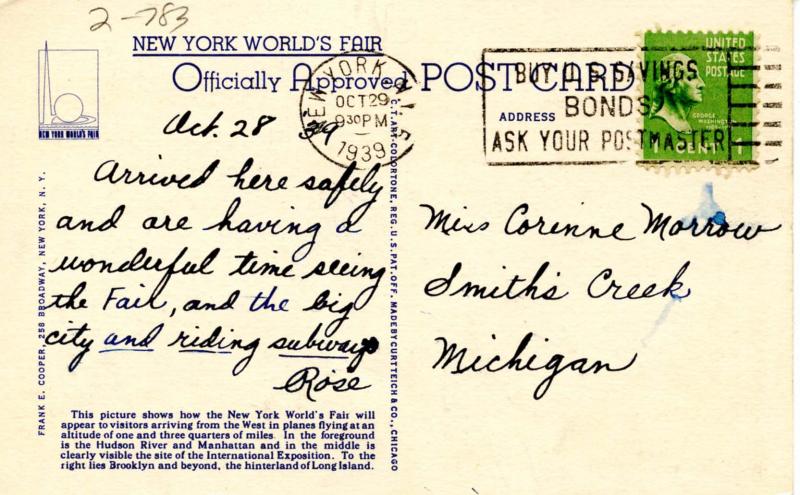 2-783
NEW YORK WORLD'S FAIR
Officially Approved POST CARD
NEW YORK WORLD'S FAIR
NEW YORK, N.Y.
OCT 29
9 30 PM
1939
BUY U.S. SAVINGS
BONDS
ASK YOUR POSTMASTER
UNITED
STATES
POSTAGE
GEORGE
WASHINGTON
1 CENT 1
ADDRESS
Oct. 28 39
Arrived here safely
and are having a
wonderful time seeing
the Fair, and the big
city and riding subways
Rose
Miss Corinne Morrow
Smith's Creek
Michigan
FRANK E. COOPER, 258 BROADWAY, NEW YORK, N. Y.
C.T. ART-COLORTONE, REG. U.S. PAT. OFF. MADE BY CURT TEICH & CO., CHICAGO
This picture shows how the New York World's Fair will
appear to visitors arriving from the West in planes flying at an
altitude of one and three quarters of miles. In the foreground
is the Hudson River and Manhattan and in the middle is
clearly visible the site of the International Exposition. To the
right lies Brooklyn and beyond, the hinterland of Long Island.